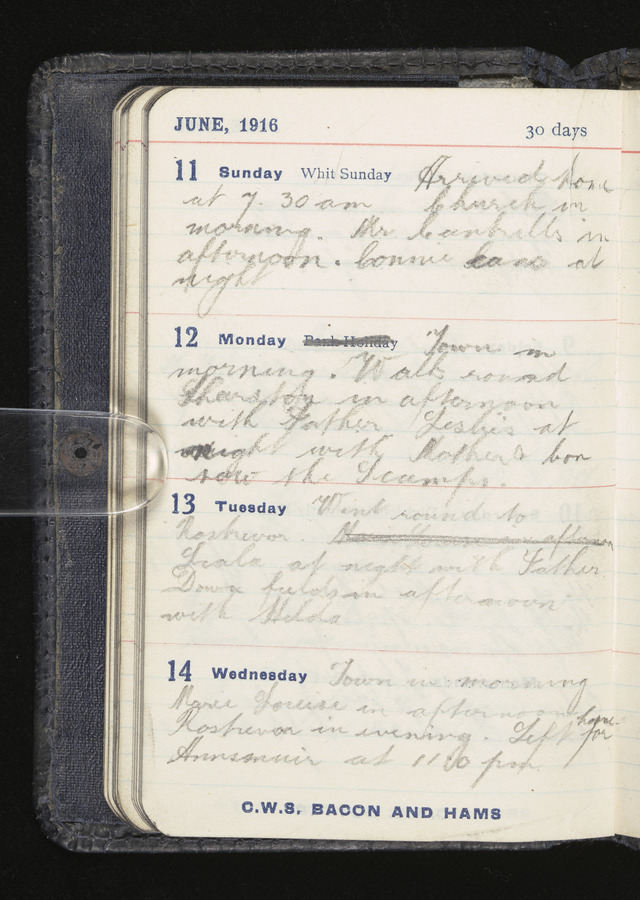 JUNE, 1916 30 days
11 Sunday Whit Sunday Arrived home
at 7.30 am Church in
morning. Mr. in
afternoon. Connie at
night
12 Monday Bank Holiday Town in
morning. Walk round
in afternoon
with Father Leslies at
night with Mother & Con
saw the Scamps.
13 Tuesday Went round to
Rostrevor.
Scala at night with Father
Down fields in afternoon
with Hilda
14 Wednesday Town in morning
Marie Louise in afternoon
Rostrevor in evening. Left home for
Annsmuir at pm.
C.W.S. BACON AND HAMS